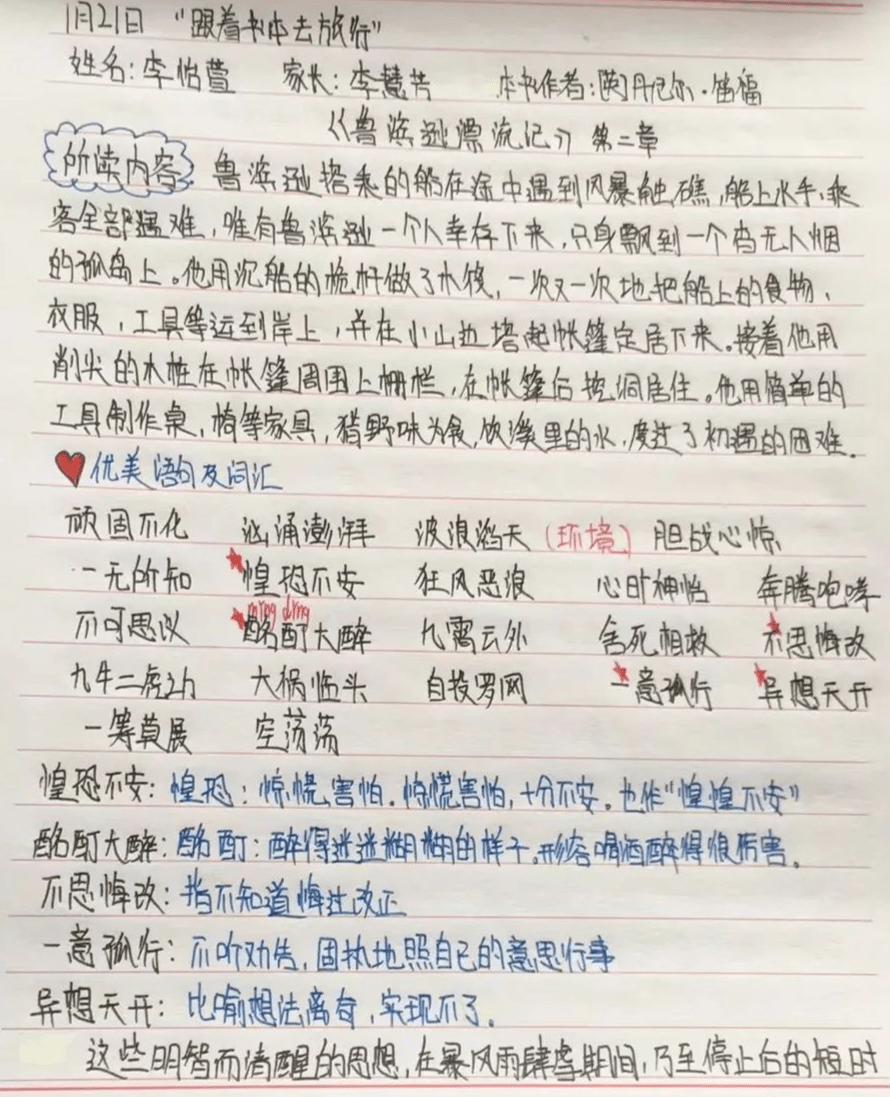 1月21日 “跟着书本去旅行”
姓名:李怡萱 家长:李慧芳 本书作者:[英]丹尼尔·笛福
《鲁滨逊漂流记》第二章
所读内容: 鲁滨逊搭乘的船在途中遇到风暴触礁,船上水手、乘
客全部遇难,唯有鲁滨逊一个人幸存下来,只身飘到一个杳无人烟
的孤岛上。他用沉船的桅杆做了木筏,一次又一次地把船上的食物、
衣服、工具等运到岸上,并在小山边搭起帐篷定居下来。接着他用
削尖的木桩在帐篷周围上栅栏,在帐篷后挖洞居住。他用简单的
工具制作桌,椅等家具,猎野味为食,饮溪里的水,度过了初遇的困难.
优美语句及词汇
顽固不化 汹涌澎湃 波浪滔天(环境) 胆战心惊
一无所知 惶恐不安 狂风恶浪 心旷神怡 奔腾咆哮
mǐng dǐng
不可思议 酩酊大醉 九霄云外 舍死相救 不思悔改
九牛二虎之力 大祸临头 自投罗网 一意孤行 异想天开
一筹莫展 空荡荡
惶恐不安:惶恐:惊慌害怕.惊慌害怕,十分不安。也作“惶惶不安”
酩酊大醉:酩酊:醉得迷迷糊糊的样子。形容喝酒醉得很厉害.
不思悔改:指不知道悔过改正
一意孤行:不听劝告,固执地照自己的意思行事
异想天开:比喻想法离奇,实现不了.
这些明智而清醒的思想,在暴风雨肆虐期间,乃至停止后的短时